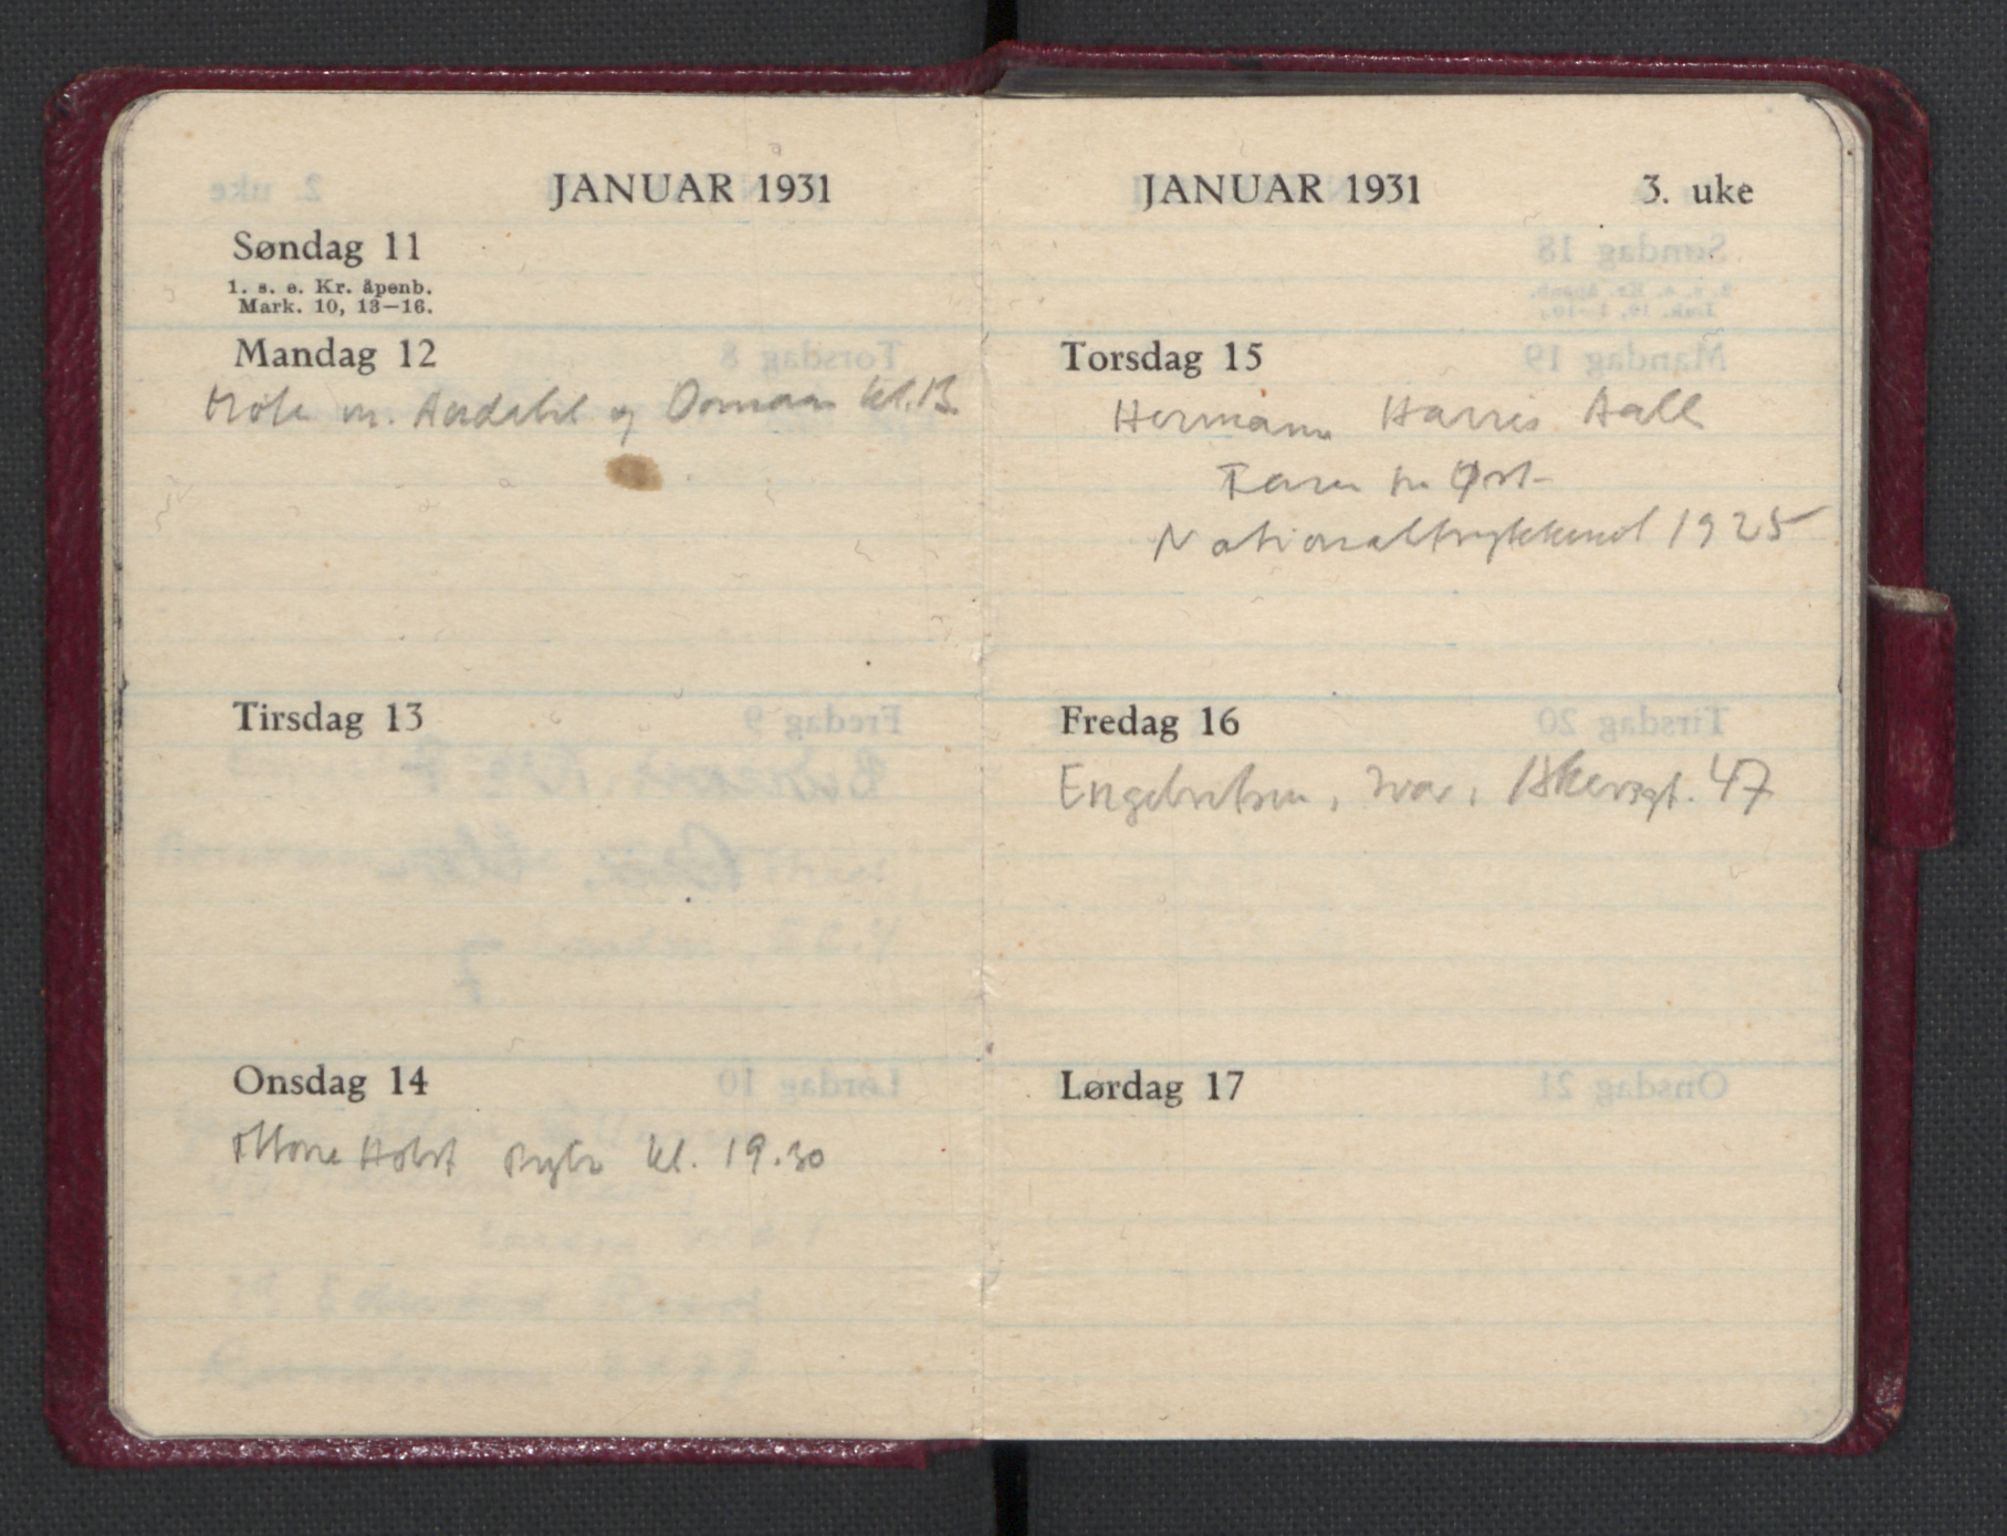 JANUAR 1931
Søndag 11
1. s. e. Kr. åpenb.
Mark. 10, 13—16.
Mandag 12
Møte m. Aadahl og Oomaas kl. 13.
Tirsdag 13
Onsdag 14
Holst kl. 19.30
JANUAR 1931 3. uke
Torsdag 15
Hermann Harris Aall
Faren fra Øst-
Nationaltrykkeriet 1925
Fredag 16
Engebretsen, Ivar, Akersgt. 47
Lørdag 17